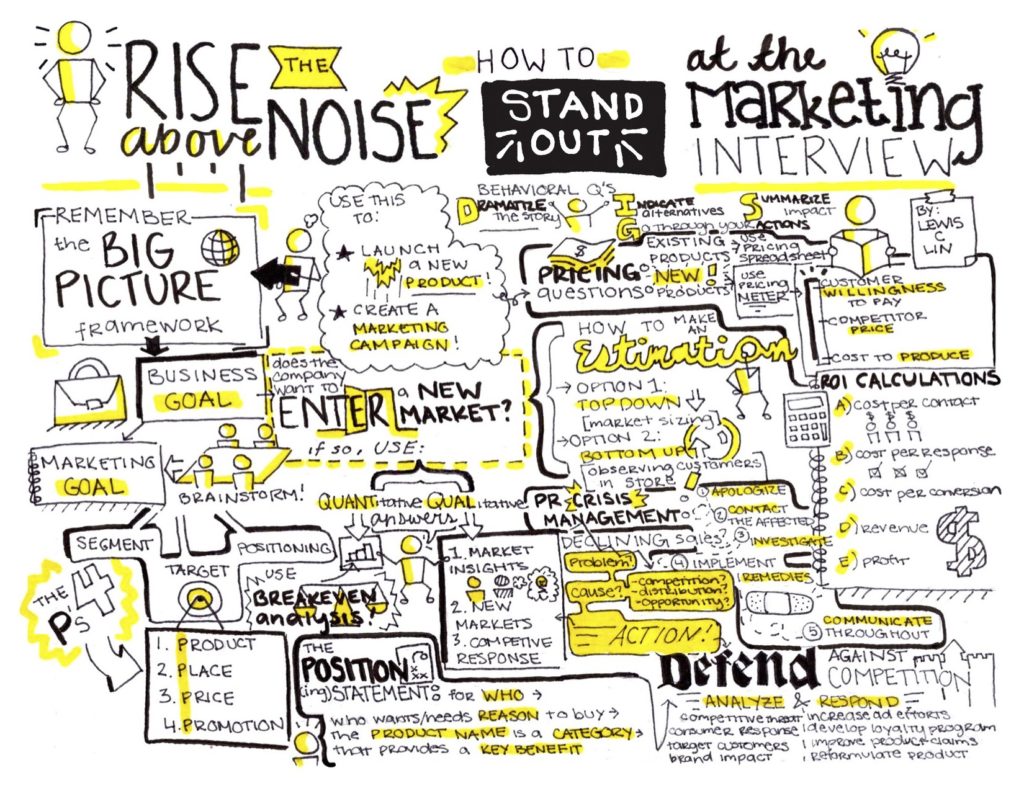 RISE
above
THE
NOISE
HOW TO
STAND
OUT
at the
MARKETING
INTERVIEW
BY:
LEWIS
C
LIN
REMEMBER
the BIG
PICTURE
framework
USE THIS
TO:
LAUNCH
a NEW
PRODUCT!
CREATE A
MARKETING
CAMPAIGN!
BEHAVIORAL Q'S
DRAMATIZE
the STORY
INDICATE
alternatives
Go through your ACTIONS
SUMMARIZE
impact
PRICING
questions
EXISTING
PRODUCTS
USE
PRICING
SPREADSHEET
NEW!
PRODUCTS
USE
PRICING
METER
CUSTOMER
WILLINGNESS
TO PAY
COMPETITOR
PRICE
COST TO PRODUCE
BUSINESS
GOAL
does the
company
want to
ENTER
a NEW
MARKET?
if so, USE:
MARKETING
GOAL
BRAINSTORM!
QUANTitative QUALitative
answers
HOW TO MAKE
AN
Estimation
OPTION 1:
TOP DOWN
[market sizing]
OPTION 2:
BOTTOM UP
[observing customers
in store]
ROI CALCULATIONS
A) cost per contact
B) cost per response
C) cost per conversion
D) revenue
E) profit
SEGMENT
TARGET
POSITIONING
THE
4
Ps
1. PRODUCT
2. PLACE
3. PRICE
4. PROMOTION
USE
BREAKEVEN
analysis!
1. MARKET
INSIGHTS
2. NEW
MARKETS
3. COMPETIVE
RESPONSE
PR CRISIS
MANAGEMENT
1 APOLOGIZE
2 CONTACT
THE AFFECTED
3 INVESTIGATE
4 IMPLEMENT
REMEDIES
5 COMMUNICATE
THROUGHOUT
DECLINING sales?
Problem?
cause?
-competition?
-distribution?
-opportunity?
ACTION!
THE
POSITION
(ing) STATEMENT: for WHO
who wants/needs REASON to buy
the PRODUCT NAME is a CATEGORY
that provides a KEY BENEFIT
Defend
AGAINST
COMPETITION
ANALYZE & RESPOND
competitive threat
consumer response
target customers
brand impact
increase ad efforts
develop loyalty program
improve product claims
reformulate product